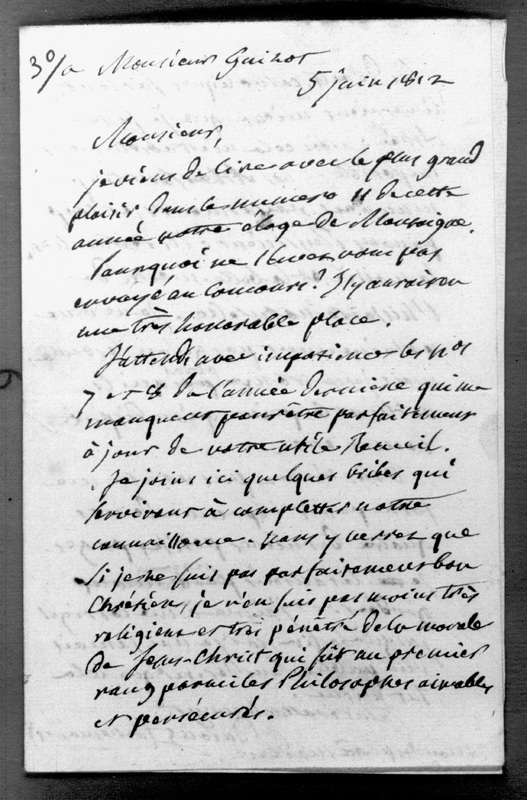 30/a Monsieur Guizot
5 juin 1812
Monsieur,
je viens de lire avec le plus grand
plaisir dans le numero 11 de cette
année votre éloge de Montaigne.
Pourquoi ne l'avez vous pas
envoyé au concours? Il y auroit eu
une très honorable place.
J'attends avec impatience les nos
7 et 8 de l'année dernière qui me
manquent pour être parfaitement
à jour de votre utile Recueil.
Je joins ici quelques bribes qui
serviront à completter notre
connaissance. vous y verrez que
si je ne suis pas parfaitement bon
Chrétien, je n'en suis pas moins très
religieux et très pénétré de la morale
de Jesus-Christ qui fut au premier
rang parmi les Philosophes aimables
et persécutés.